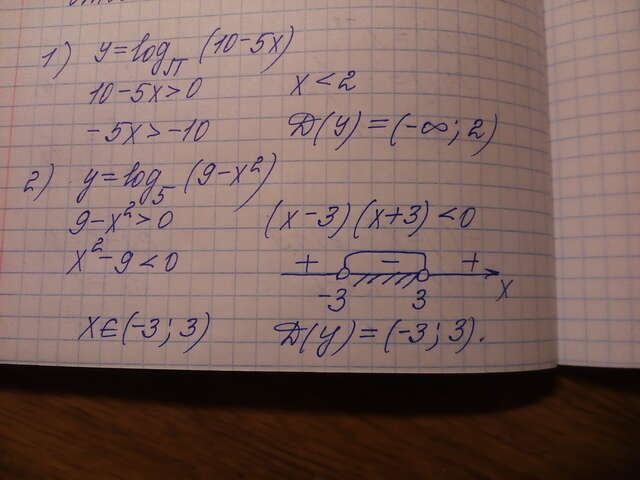 1) y=log_π (10-5x)
10-5x>0 x<2
-5x>-10 D(y)=(-∞; 2)
2) y=log_5 (9-x²)
9-x²>0 (x-3)(x+3)<0
x²-9<0 + - +
-3 3 x
x∈(-3; 3) D(y)=(-3; 3).